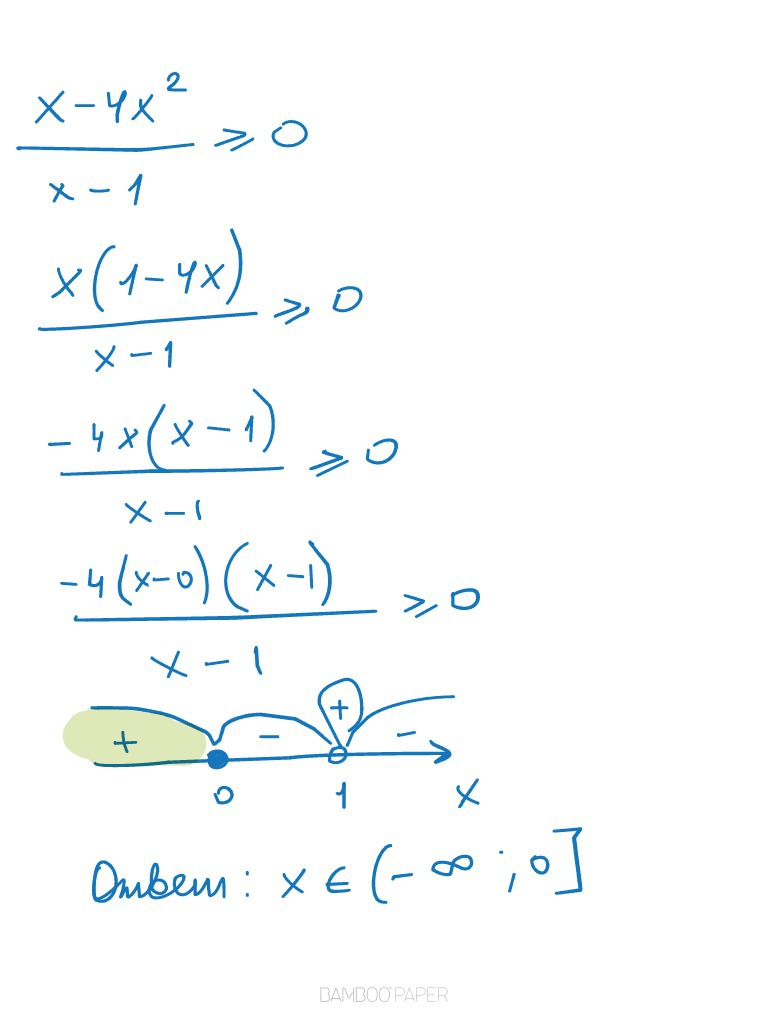 x - 4x² / x - 1 ⩾ 0
x(1 - 4x) / x - 1 ⩾ 0
- 4x(x - 1) / x - 1 ⩾ 0
- 4(x - 0)(x - 1) / x - 1 ⩾ 0
+ - + -
0 1 x
Ответ: x ∈ (- ∞ ; 0]
BAMBOO PAPER